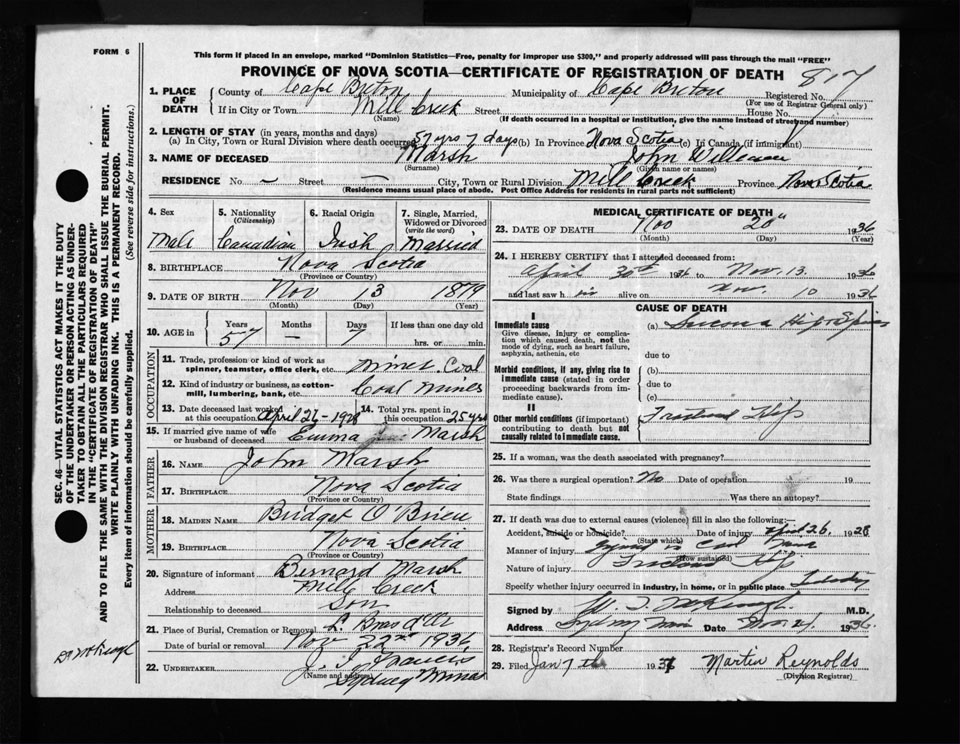 FORM 6
This form if placed in an envelope, marked "Dominion Statistics—Free, penalty for improper use $300," and properly addressed will pass through the mail "FREE"
PROVINCE OF NOVA SCOTIA—CERTIFICATE OF REGISTRATION OF DEATH
817
1. PLACE OF DEATH County of Cape Breton Municipality of Cape Breton Registered No.
(For use of Registrar General only)
If in City or Town Mill Creek Street House No.
(Name) (If death occurred in a hospital or institution, give the name instead of street and number)
2. LENGTH OF STAY (in years, months and days)
(a) In City, Town or Rural Division where death occurred 57 yrs 7 days (b) In Province Nova Scotia (c) In Canada (if immigrant)
3. NAME OF DECEASED Marsh John William
(Surname) (Given name or names)
RESIDENCE No. — Street — City, Town or Rural Division Mill Creek Province Nova Scotia
(Residence means usual place of abode. Post Office Address for residents in rural parts not sufficient)
4. Sex 5. Nationality (Citizenship) 6. Racial Origin 7. Single, Married, Widowed or Divorced (write the word)
Male Canadian Irish Married
8. BIRTHPLACE Nova Scotia
(Province or Country)
9. DATE OF BIRTH Nov 13 1879
(Month) (Day) (Year)
10. AGE in Years Months Days If less than one day old
57 — 7 hrs. or min.
OCCUPATION
11. Trade, profession or kind of work as spinner, teamster, office clerk, etc. Miner Coal
12. Kind of industry or business, as cotton-mill, lumbering, bank, etc. Coal Mines
13. Date deceased last worked at this occupation April 26 - 1928 14. Total yrs. spent in this occupation 25 yrs
15. If married give name of wife or husband of deceased Emma Marsh
FATHER
16. Name John Marsh
17. Birthplace Nova Scotia
(Province or Country)
MOTHER
18. MAIDEN NAME Bridget O'Brien
19. BIRTHPLACE Nova Scotia
(Province or Country)
20. Signature of informant Bernard Marsh
Address Mill Creek
Relationship to deceased Son
21. Place of Burial, Cremation or Removal L. Bras d'Or
Date of burial or removal Nov 22nd 1936
22. UNDERTAKER
(Name and address) Sydney Mines
MEDICAL CERTIFICATE OF DEATH
23. DATE OF DEATH Nov 20" 1936
(Month) (Day) (Year)
24. I HEREBY CERTIFY that I attended deceased from:
April 30th 1936 to Nov. 13 1936
and last saw h im alive on Nov. 10 1936
CAUSE OF DEATH
I
Immediate cause (a)
Give disease, injury or complication which caused death, not the mode of dying, such as heart failure, asphyxia, asthenia, etc
due to
Morbid conditions, if any, giving rise to immediate cause (stated in order proceeding backwards from immediate cause).
(b)
due to
(c)
II
Other morbid conditions (if important) contributing to death but not causally related to immediate cause. Fractured Hip
25. If a woman, was the death associated with pregnancy?
26. Was there a surgical operation? No Date of operation 19
State findings Was there an autopsy?
27. If death was due to external causes (violence) fill in also the following:—
Accident, suicide or homicide? Date of injury April 26, 1928
(State which)
Manner of injury Injury in Coal Mine
(How sustained)
Nature of injury Fractured Hip
Specify whether injury occurred in industry, in home, or in public place Industry
Signed by M.D.
Address Sydney Mines Date Nov. 21 1936.
28. Registrar's Record Number
29. Filed Jan 7th 1937 Martin Reynolds
(Division Registrar)
SEC. 46—VITAL STATISTICS ACT MAKES IT THE DUTY OF THE UNDERTAKER OR PERSON ACTING AS UNDERTAKER TO OBTAIN ALL THE PARTICULARS REQUIRED IN THE "CERTIFICATE OF REGISTRATION OF DEATH"
AND TO FILE THE SAME WITH THE DIVISION REGISTRAR WHO SHALL ISSUE THE BURIAL PERMIT.
WRITE PLAINLY WITH UNFADING INK. THIS IS A PERMANENT RECORD.
Every item of information should be carefully supplied. (See reverse side for instructions.)